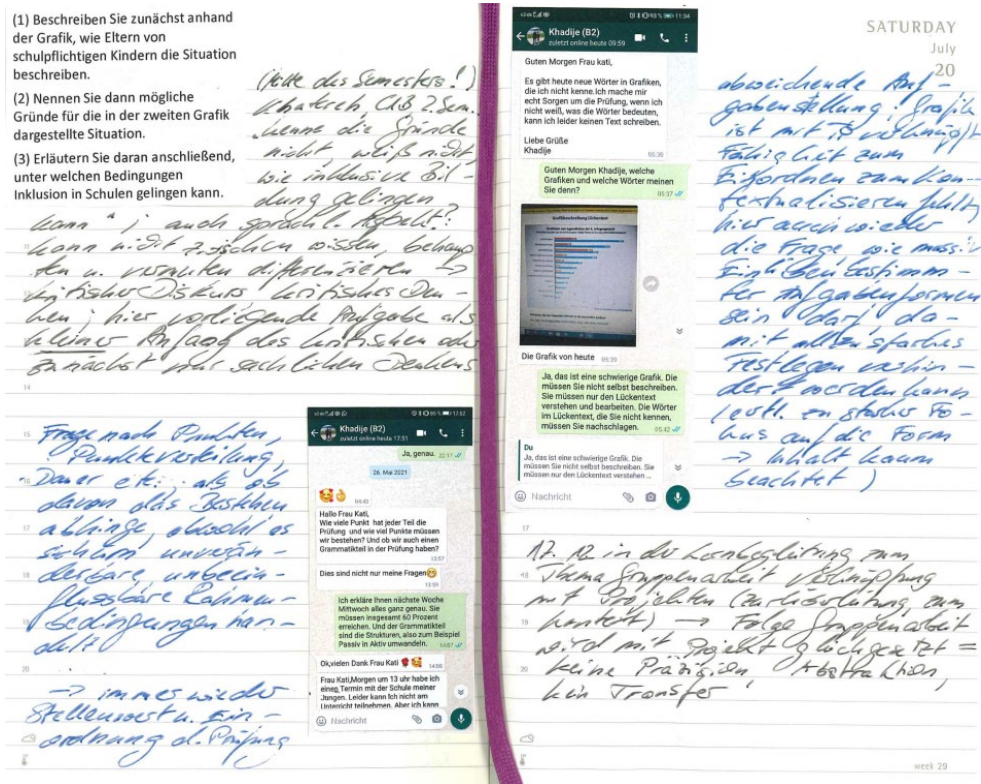 (1) Beschreiben Sie zunächst anhand
der Grafik, wie Eltern von
schulpflichtigen Kindern die Situation
beschreiben.
(2) Nennen Sie dann mögliche
Gründe für die in der zweiten Grafik
dargestellte Situation.
(3) Erläutern Sie daran anschließend,
unter welchen Bedingungen
Inklusion in Schulen gelingen kann.
des Semesters!)
2. Sem.
kenne die Gründe
nicht, weiß nicht,
wie inklusive Bil-
dung gelingen
kann"; auch sprachl. Aspekt:
kann nicht zwischen wissen, behaup-
ten u. vermuten differenzieren →
kritischer Diskurs kritisches Den-
ken; hier vorliegende Aufgabe als
kleiner Anfang des kritischen oder
zunächst nur sachlichen Denkens
14
15
Frage nach Punkten,
Punkteverteilung,
16
Dauer etc.: als ob
davon das Bestehen
17
abhinge, obwohl es
sich um unverän-
18
derbare, unbeein-
flussbare Rahmen-
19
bedingungen han-
delt
20
→ immer wieder
Stellenwert u. Ein-
ordnung d. Prüfung
17:52
Khadije (B2)
zuletzt online heute 17:51
Ja, genau. 22:17
26. Mai 2021
04:43
Hallo Frau Kati,
Wie viele Punkt hat jeder Teil die
Prüfung und wie viel Punkte müssen
wir bestehen? Und ob wir auch einen
Grammatikteil in der Prüfung haben?
13:57
Dies sind nicht nur meine Fragen
13:59
Ich erkläre Ihnen nächste Woche
Mittwoch alles ganz genau. Sie
müssen insgesamt 60 Prozent
erreichen. Und der Grammatikteil
sind die Strukturen, also zum Beispiel
Passiv in Aktiv umwandeln. 14:07
Ok,vielen Dank Frau Kati 14:08
Frau Kati,Morgen um 13 uhr habe ich
eineg Termin mit der Schule meiner
Jungen. Leider kann Ich nicht am
Unterricht teilnehmen. Aber ich kann
Nachricht
98 % 11:34
Khadija (B2)
zuletzt online heute 09:59
Guten Morgen Frau kati,
Es gibt heute neue Wörter in Grafiken,
die ich nicht kenne.Ich mache mir
echt Sorgen um die Prüfung, wenn ich
nicht weiß, was die Wörter bedeuten,
kann ich leider keinen Text schreiben.
Liebe Grüße
Khadije
05:39
Guten Morgen Khadije, welche
Grafiken und welche Wörter meinen
Sie denn? 05:37
Grafikbeschreibung Lückentext
Die Grafik von heute 05:39
Ja, das ist eine schwierige Grafik. Die
müssen Sie nicht selbst beschreiben.
Sie müssen nur den Lückentext
verstehen und bearbeiten. Die Wörter
im Lückentext, die Sie nicht kennen,
müssen Sie nachschlagen. 05:42
Du
Ja, das ist eine schwierige Grafik. Die
müssen Sie nicht selbst beschreiben. Sie
müssen nur den Lückentext verstehen ...
Nachricht
SATURDAY
July
20
abweichende Auf-
gabenstellung: Grafik
ist mit verknüpft
Fähigkeit zum
Einordnen zum Kon-
textualisieren fehlt,
hier auch wieder
die Frage, wie massiv
Einüben bestimm-
ter Aufgabenformen
sein darf, da-
mit allzu starkes
Festlegen verhin-
dert werden kann
(evtl. zu starker Fo-
kus auf die Form
→ Inhalt kaum
beachtet)
17
17.12. in der Lernbegleitung zum
18
Thema Gruppenarbeit Verknüpfung
mit Projekten (zur zum
19
Kontext) → Folge Gruppenarbeit
wird mit Projekt gleichgesetzt =
20
keine Präzision, Abstraktion,
kein Transfer
week 29